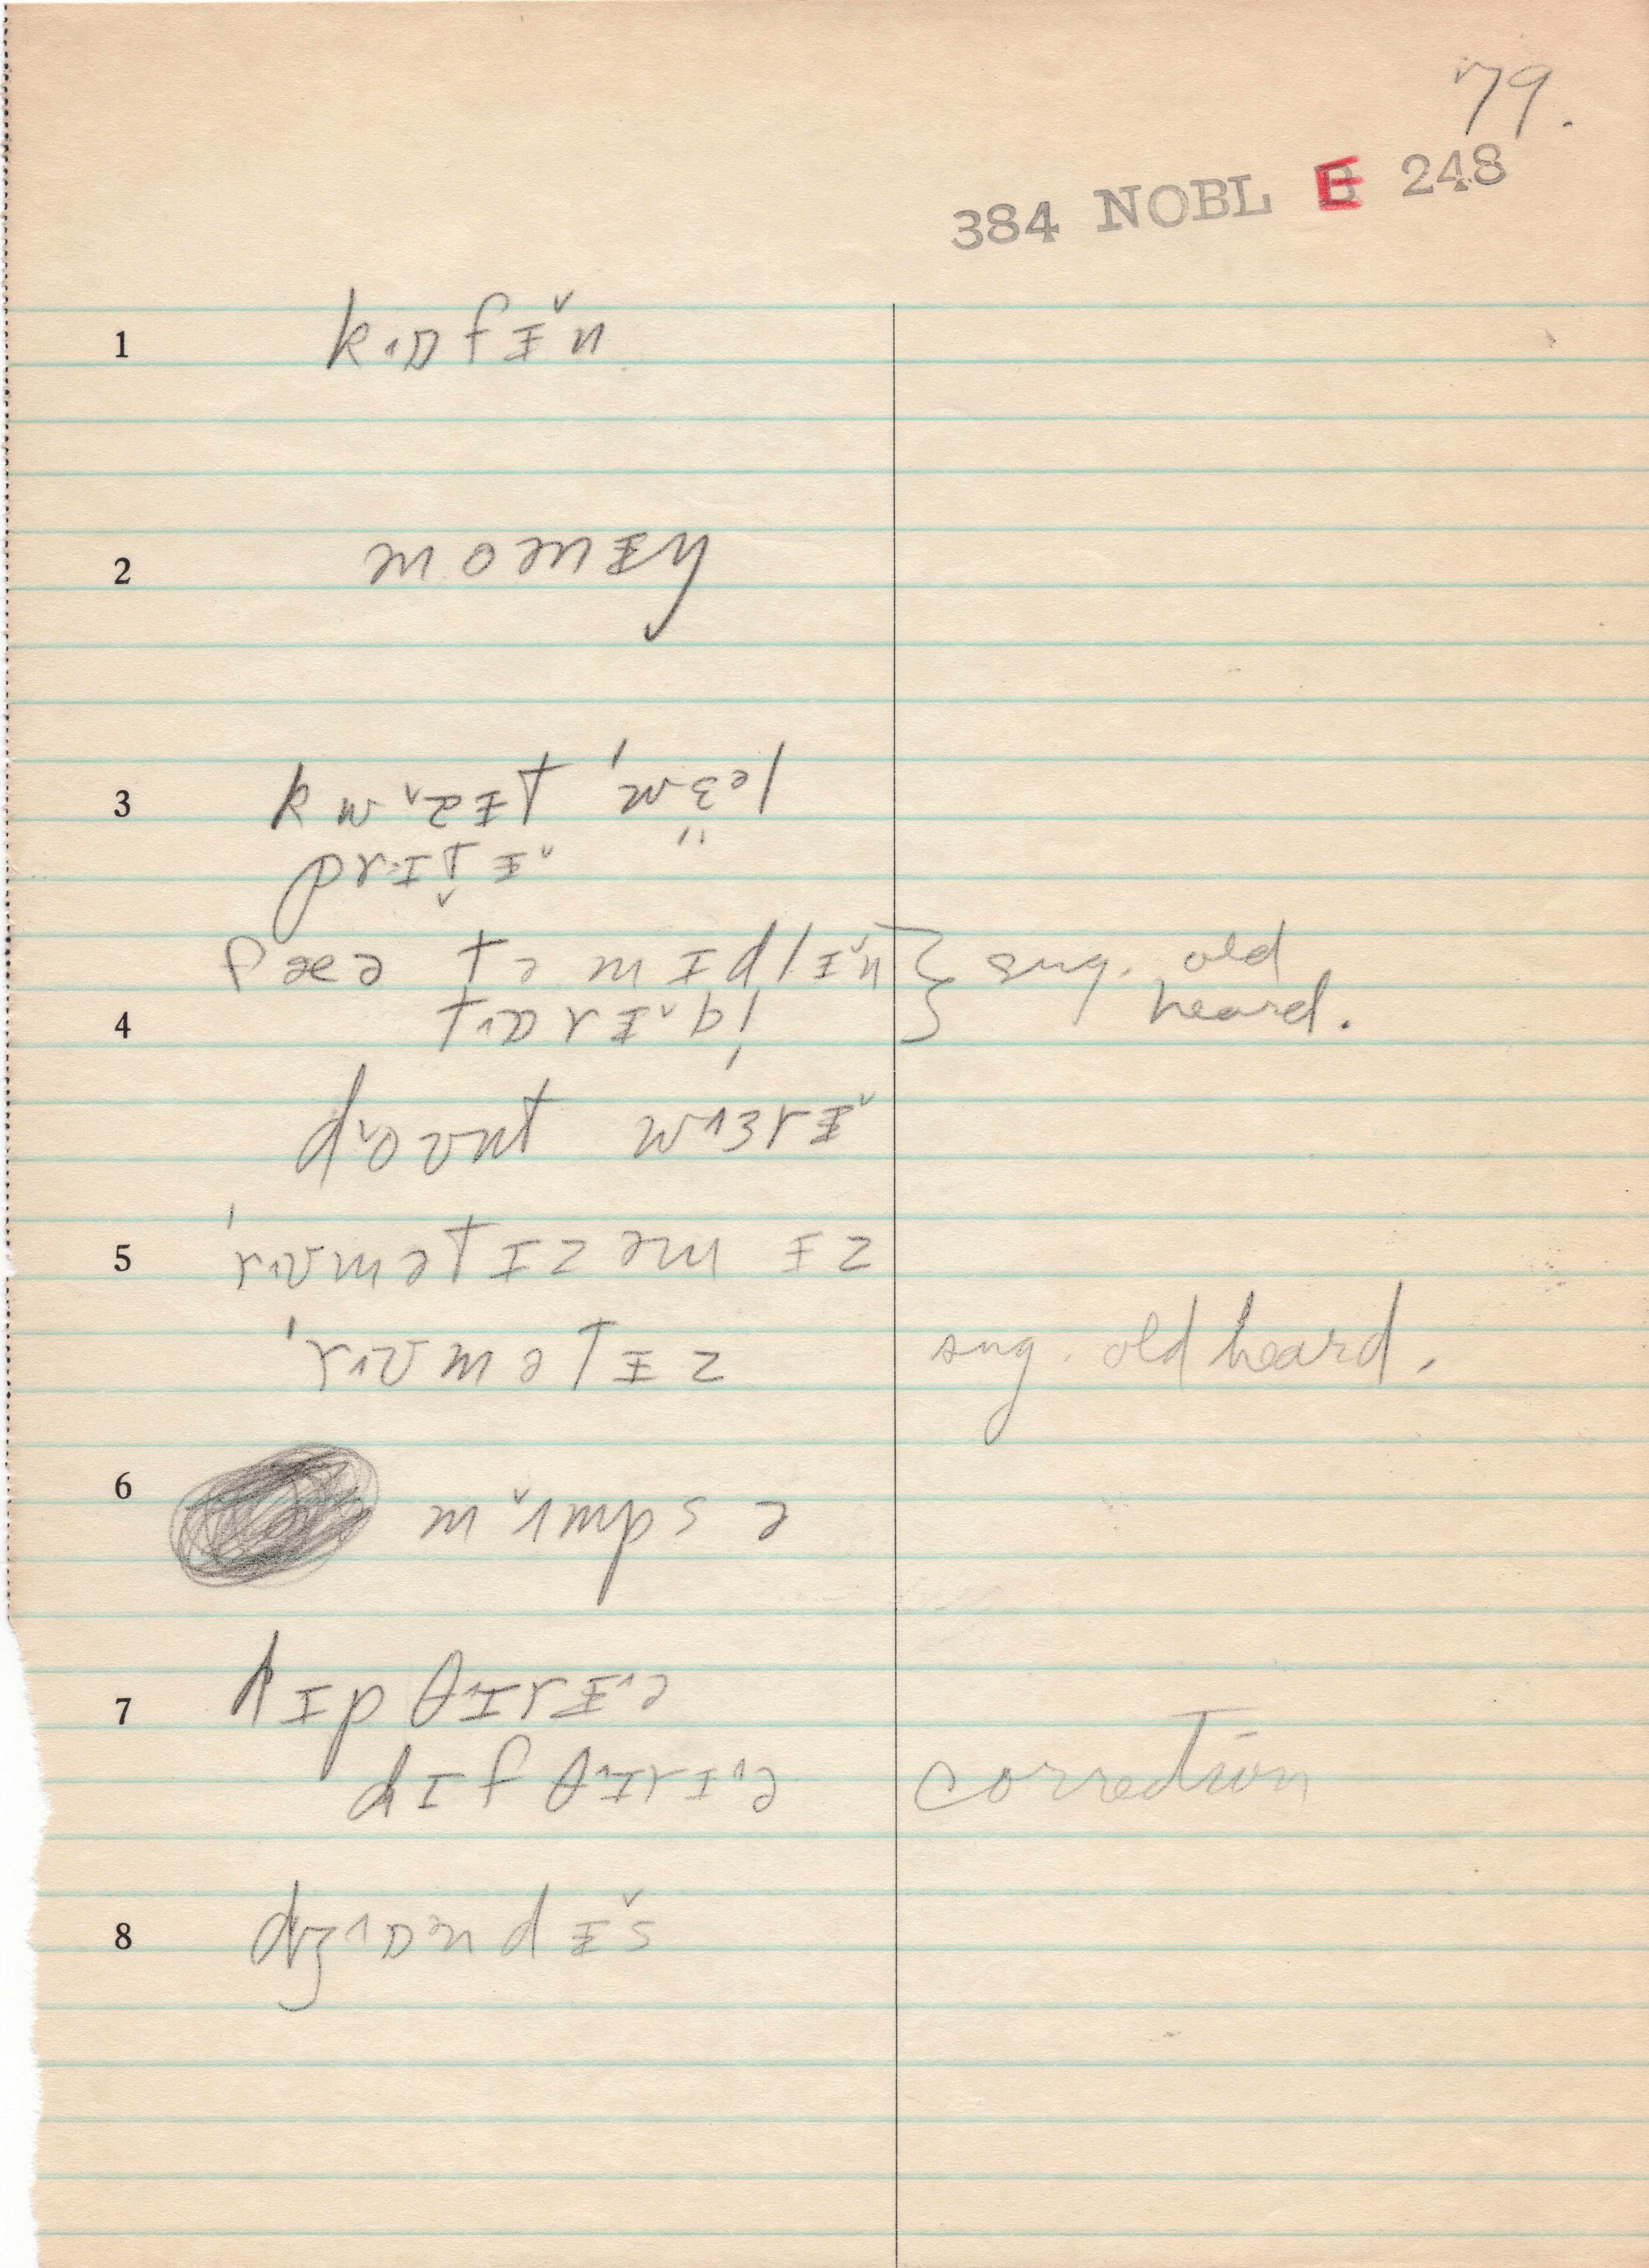 79.
384 NOBL E 248
1 k˄ɒfɪ̵˅n
2 moəmɪ̵ŋ
3 kw˅ɛɪ̵t 'wɛəl
prɪt̬ɪ̵˅ "
fæə tə mɪdlɪ̵˅n } sug. old
4 t˄ɒrɪ̵˅bl̩ heard.
d˅oʊnt w˄ɜrɪ̵˅
5 'r˄ʊmətɪzəm ɪ̵z
'r˄ʊmətɪ̵z sug. old heard.
6 m˅ʌmps ə
7 dɪpθ˄ɪrɪ̵˄ə
dɪfθ˄ɪrɪ˄ə correction
8 dʒ˄ɒndɪ̵˅s